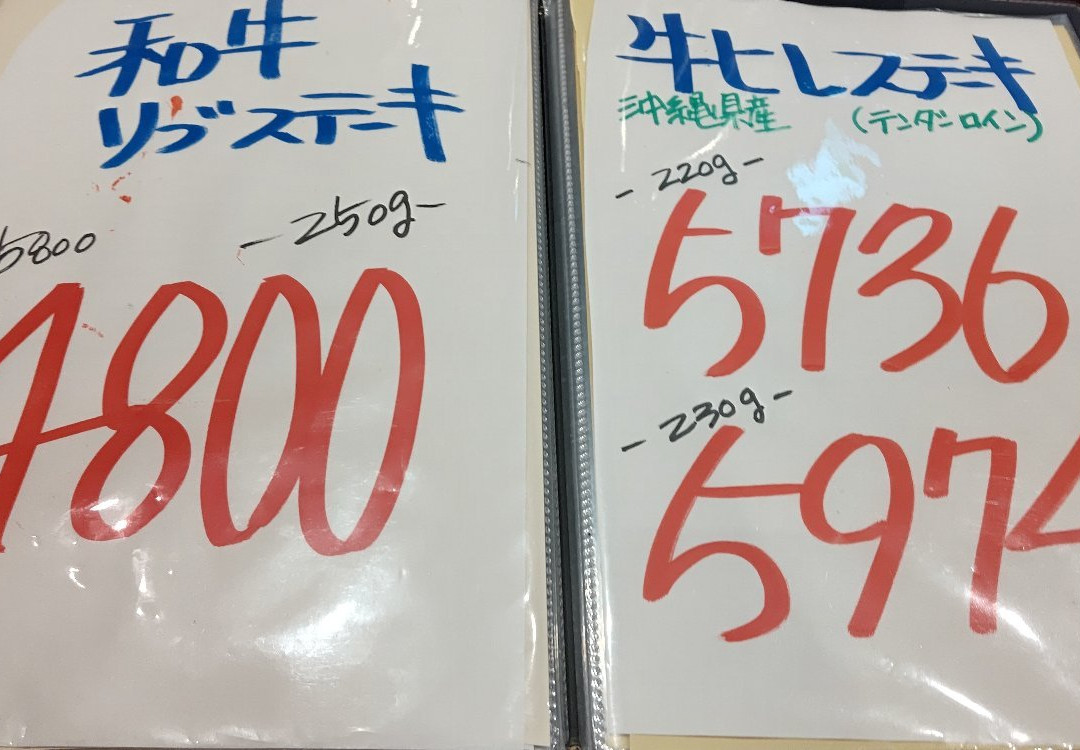 和牛
リブステーキ
5800 -250g-
4800
牛ヒレステーキ
沖縄県産 (テンダーロイン)
-220g-
5736
-230g-
5974